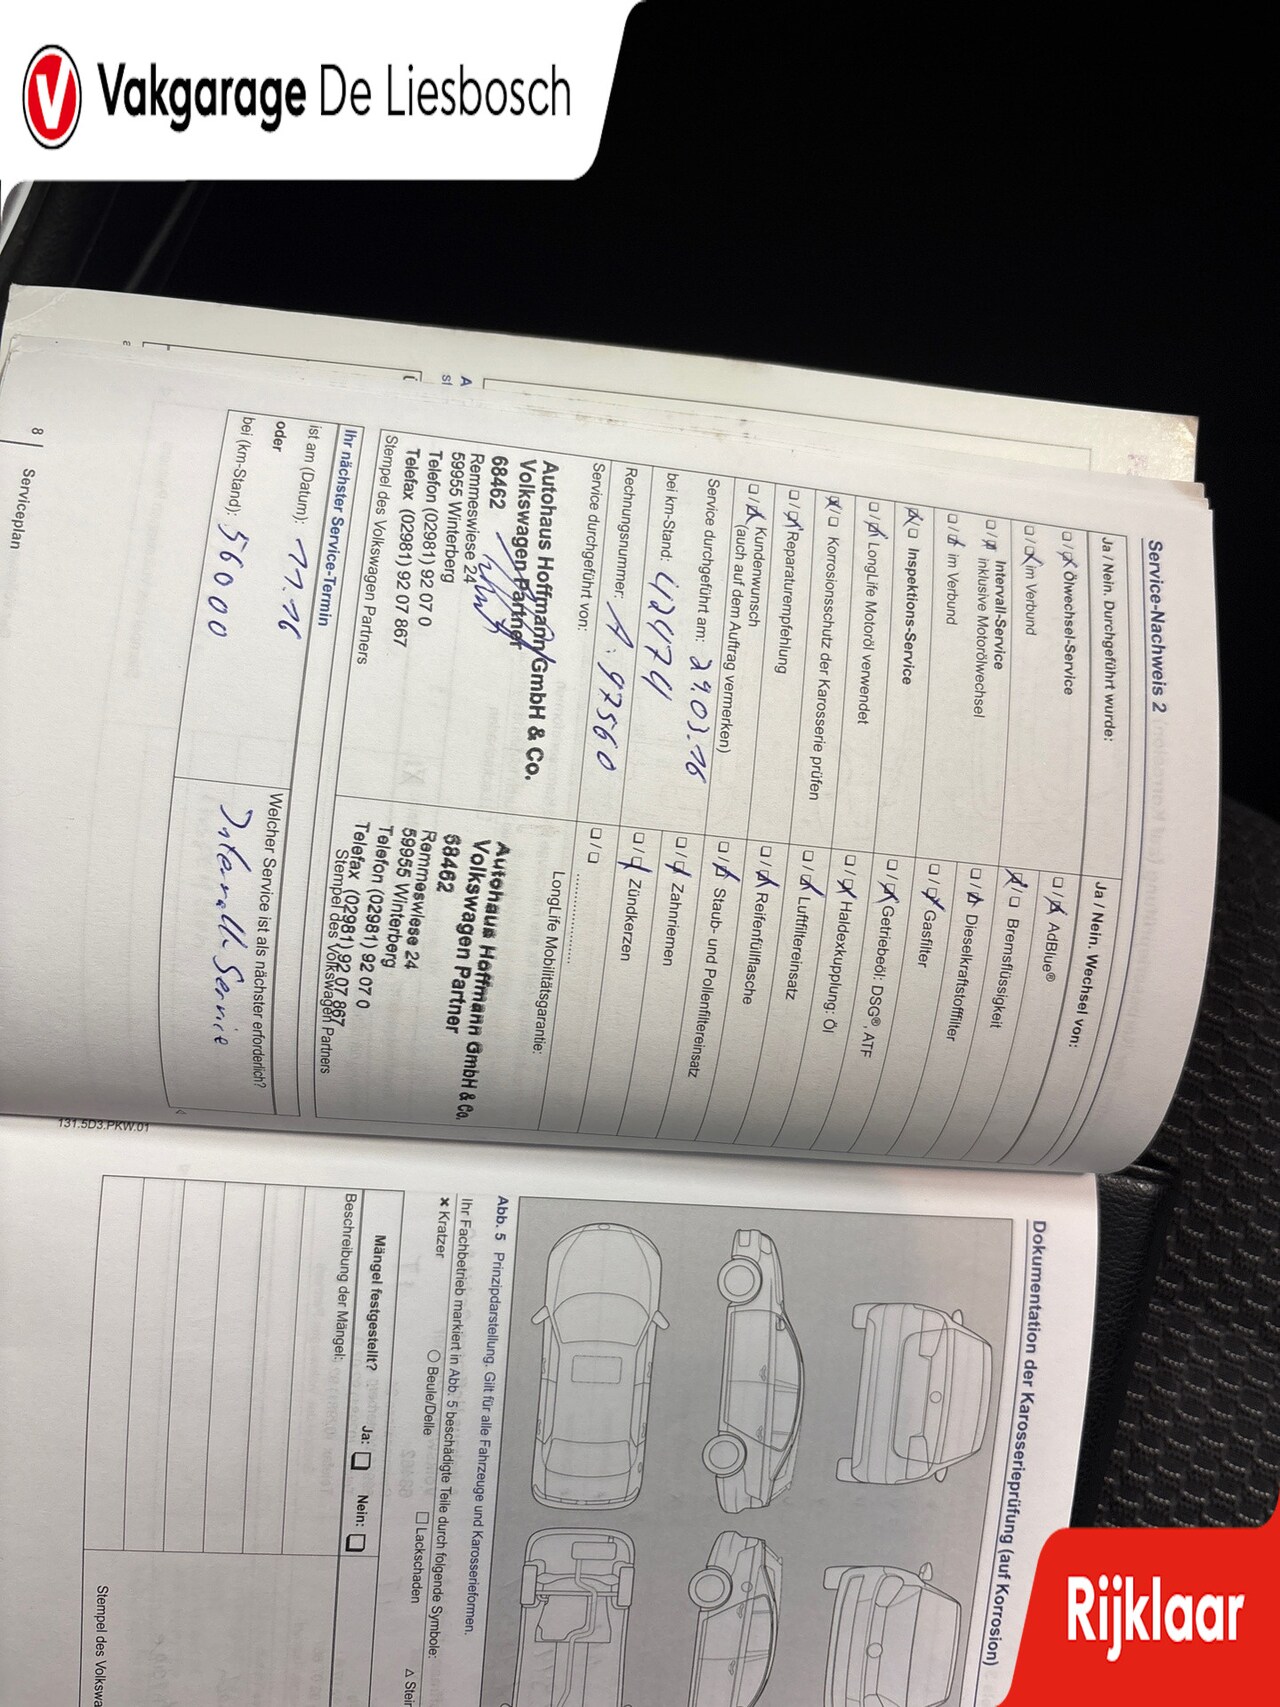 Vakgarage De Liesbosch
Service-Nachweis 2
Ja / Nein. Durchgeführt wurde:
Ja / Nein. Wechsel von:
Ölwechsel-Service
AdBlue®
im Verbund
Bremsflüssigkeit
Intervall-Service
inklusive Motorölwechsel
Dieselkraftstofffilter
im Verbund
Gasfilter
Inspektions-Service
Getriebeöl: DSG®, ATF
LongLife Motoröl verwendet
Haldexkupplung: Öl
Korrosionsschutz der Karosserie prüfen
Luftfiltereinsatz
Reparaturempfehlung
Reifenfüllflasche
Kundenwunsch
(auch auf dem Auftrag vermerken)
Staub- und Pollenfiltereinsatz
Service durchgeführt am: 29.03.16
Zahnriemen
bei km-Stand: 42474
Zündkerzen
Rechnungsnummer: A. 97560
Service durchgeführt von:
LongLife Mobilitätsgarantie:
Autohaus Hoffmann GmbH & Co.
Volkswagen Partner
68462
Remmeswiese 24
59955 Winterberg
Telefon (02981) 92 07 0
Telefax (02981) 92 07 867
Stempel des Volkswagen Partners
Autohaus Hoffmann GmbH & Co.
Volkswagen Partner
68462
Remmeswiese 24
59955 Winterberg
Telefon (02981) 92 07 0
Telefax (02981) 92 07 867
Stempel des Volkswagen Partners
Ihr nächster Service-Termin
ist am (Datum): 11.16
oder
bei (km-Stand): 56000
Welcher Service ist als nächster erforderlich?
Intervall Service
8 Serviceplan
131.5D3.PKW.01
Dokumentation der Karosserieprüfung (auf Korrosion)
Abb. 5 Prinzipdarstellung. Gilt für alle Fahrzeuge und Karosserieformen.
Ihr Fachbetrieb markiert in Abb. 5 beschädigte Teile durch folgende Symbole:
× Kratzer
○ Beule/Delle
□ Lackschaden
△ Stein
Mängel festgestellt? Ja: □ Nein: □
Beschreibung der Mängel:
Stempel des Volkswa
Rijklaar